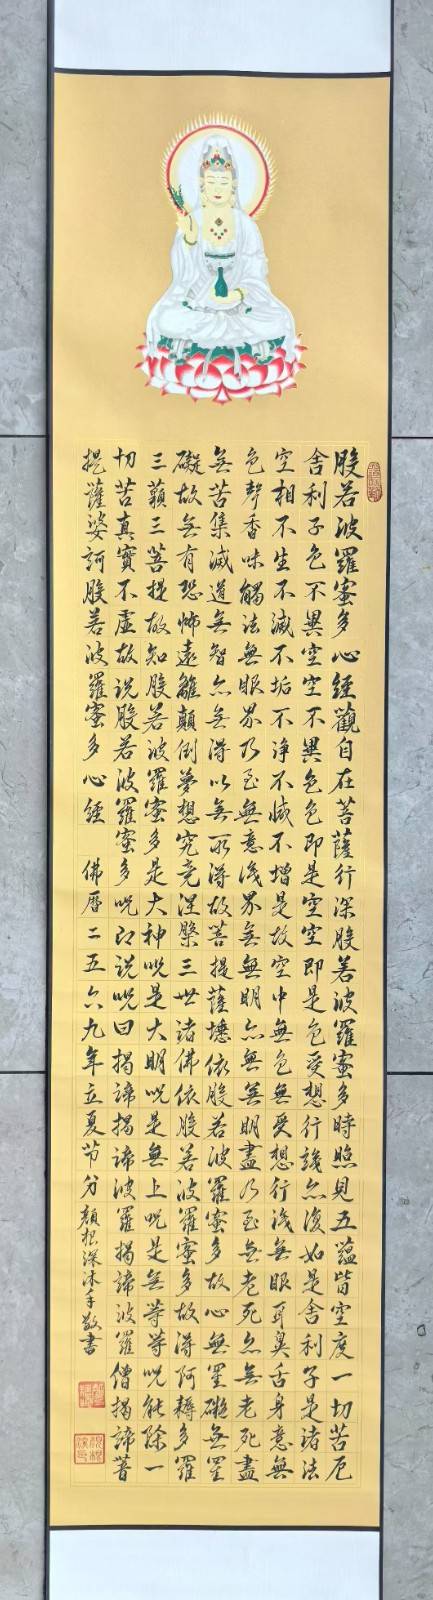 般若波羅蜜多心經觀自在菩薩行深般若波羅蜜多時照見五蘊皆空度一切苦厄
舍利子色不異空空不異色色即是空空即是色受想行識亦復如是舍利子是諸法
空相不生不滅不垢不淨不減不增是故空中無色無受想行識無眼耳鼻舌身意無
色聲香味觸法無眼界乃至無意識界無無明亦無無明盡乃至無老死亦無老死盡
無苦集滅道無智亦無得以無所得故菩提薩埵依般若波羅蜜多故心無罣礙無罣
礙故無有恐怖遠離顛倒夢想究竟涅槃三世諸佛依般若波羅蜜多故得阿耨多羅
三藐三菩提故知般若波羅蜜多是大神呪是大明呪是無上呪是無等等呪能除一
切苦真實不虛故說般若波羅蜜多呪即說呪曰揭諦揭諦波羅揭諦波羅僧揭諦菩
提薩婆訶般若波羅蜜多心經 佛曆二五六九年立夏节分 顏根深沐手敬書